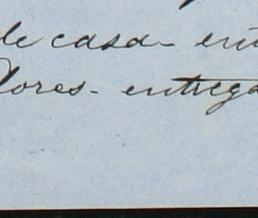 de casa - ent
lores - entrega